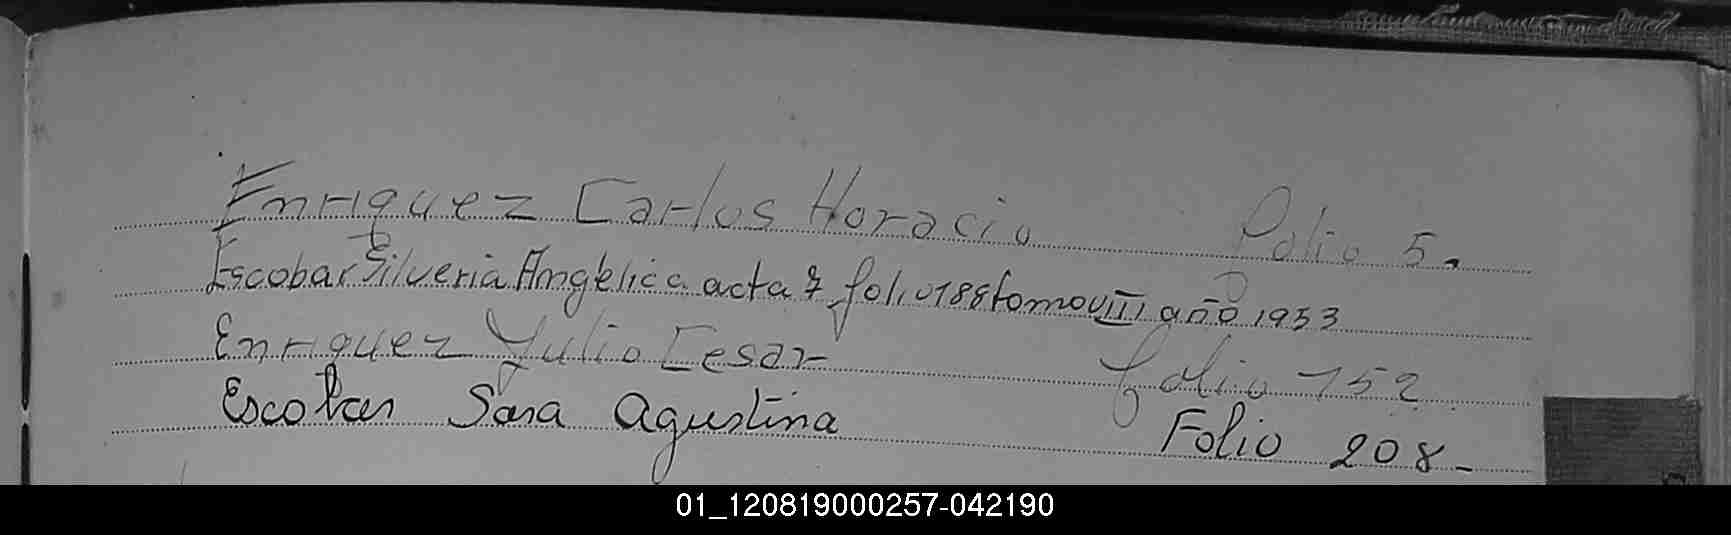 Enriquez Carlos Horacio Folio 5.
Escobar Silveria Angelica acta 7 folio 188 tomo VIII año 1953
Enriquez Yulio Cesar folio 152
Escobar Sara Agustina Folio 208-
01_120819000257-042190